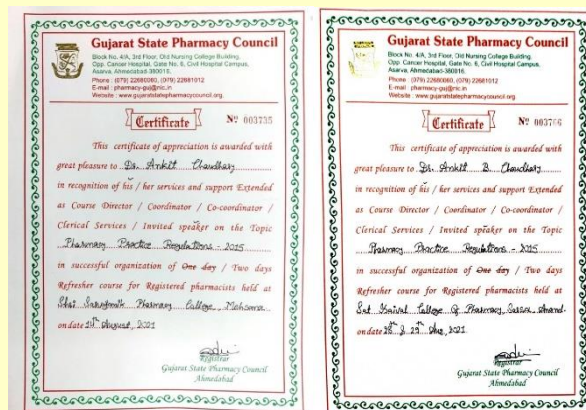 Gujarat State Pharmacy Council
Block No. 4/A, 3rd Floor, Old Nursing College Building,
Opp. Cancer Hospital, Gate No. 6, Civil Hospital Campus,
Asarva, Ahmedabad-380016.
Phone : (079) 22680060, (079) 22681012
E-mail : pharmacy-guj@nic.in
Website : www.gujaratstatepharmacycouncil.org.
Certificate
Nº 003735
This certificate of appreciation is awarded with
great pleasure to Dr. Ankit Chaudhary
in recognition of his / her services and support Extended
as Course Director / Coordinator / Co-coordinator /
Clerical Services / Invited speaker on the Topic
Pharmacy Practice Regulations - 2015
in successful organization of One day / Two days
Refresher course for Registered pharmacists held at
Shri Pharmacy College, Mehsana
on date 14th August, 2021
Registrar
Gujarat State Pharmacy Council
Ahmedabad
Gujarat State Pharmacy Council
Block No. 4/A, 3rd Floor, Old Nursing College Building,
Opp. Cancer Hospital, Gate No. 6, Civil Hospital Campus,
Asarva, Ahmedabad-380016.
Phone : (079) 22680060, (079) 22681012
E-mail : pharmacy-guj@nic.in
Website : www.gujaratstatepharmacycouncil.org
Certificate
Nº 003766
This certificate of appreciation is awarded with
great pleasure to Dr. Ankit B. Chaudhary
in recognition of his / her services and support Extended
as Course Director / Coordinator / Co-coordinator /
Clerical Services / Invited speaker on the Topic
Pharmacy Practice Regulations - 2015
in successful organization of One day / Two days
Refresher course for Registered pharmacists held at
Sat Kaival College Of Pharmacy, Sarsa, Anand.
on date 28th & 29th Aug, 2021
Registrar
Gujarat State Pharmacy Council
Ahmedabad